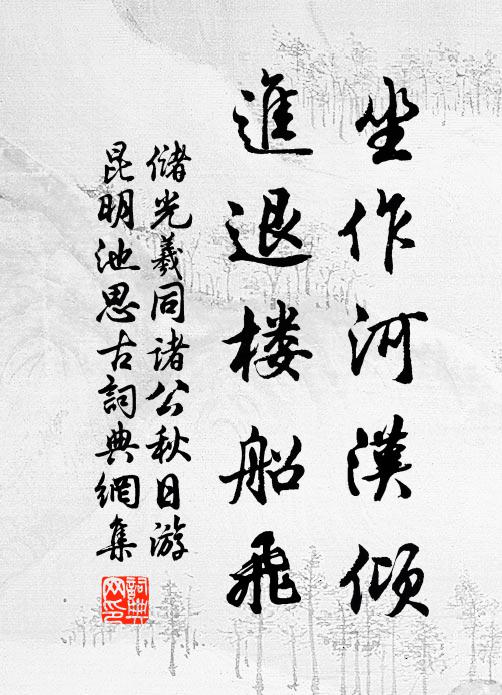 坐作河漢傾
進退楼船飛
儲光羲同諸公秋日游
昆明池思古詞典網集